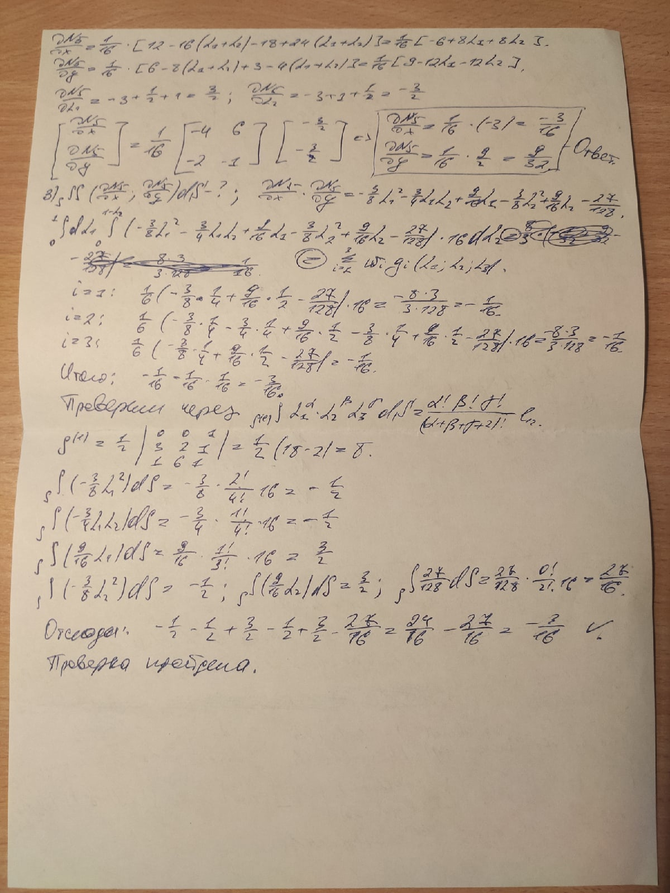 ∂N₅/∂x = 1/16 · [12 - 16(L₁+L₂) - 18 + 24(L₁+L₂)] = 1/16 [-6 + 8L₁ + 8L₂].
∂N₅/∂y = 1/16 · [6 - 8(L₁+L₂) + 3 - 4(L₁+L₂)] = 1/16 [9 - 12L₁ - 12L₂].
∂N₅/∂L₁ = -3 + 1/2 + 1 = -3/2; ∂N₅/∂L₂ = -3 + 1 + 1/2 = -3/2
[∂N₅/∂x ∂N₅/∂y] = 1/16 [-4 6 -2 -1] [-3/2 -3/2] <=> ∂N₅/∂x = 1/16 · (-3) = -3/16 ∂N₅/∂y = 1/16 · 9/2 = 9/32 - Ответ.
3) ₛ∫∫(∂N₅/∂x; ∂N₅/∂y)dS - ?; ∂N₅/∂x · ∂N₅/∂y = -3/8 L₁² - 3/4 L₁L₂ + 9/16 L₁ - 3/8 L₂² + 9/16 L₂ - 27/128.
∫dL₁ ∫(-3/8 L₁² - 3/4 L₁L₂ + 9/16 L₁ - 3/8 L₂² + 9/16 L₂ - 27/128) · 16 dL₂
= Σ wᵢ gᵢ(L₁; L₂; L₃).
i=1: 1/6 (-3/8 · 1/4 + 9/16 · 1/2 - 27/128) · 16 = -8·3/3·128 = -1/16.
i=2: 1/6 (-3/8 · 1/4 - 3/4 · 1/4 + 9/16 · 1/2 - 3/8 · 1/4 + 9/16 · 1/2 - 27/128) · 16 = -8·3/3·128 = -1/16
i=3: 1/6 (-3/8 · 1/4 + 9/16 · 1/2 - 27/128) = -1/16.
Итого: -1/16 - 1/16 - 1/16 = -3/16.
Проверим через ∫ L₁^α · L₂^β L₃^γ dS = α! β! γ!/(α+β+γ+2)!
S⁽ᵉ⁾ = 1/2 |0 0 1 3 2 1 1 6 1| = 1/2 (18-2) = 8.
ₛ∫(-3/8 L₁²)dS = -3/8 · 2!/4! · 16 = -1/2
ₛ∫(-3/4 L₁L₂)dS = -3/4 · 1!/4! · 16 = -1/2
ₛ∫(9/16 L₁)dS = 9/16 · 1!/3! · 16 = 3/2
ₛ∫(-3/8 L₂²)dS = -1/2; ₛ∫(9/16 L₂)dS = 3/2; ₛ∫27/128 dS = 27/128 · 0!/2! · 16 = 27/16.
Отсюда: -1/2 - 1/2 + 3/2 - 1/2 + 3/2 - 27/16 = 24/16 - 27/16 = -3/16 ✓.
Проверка пройдена.